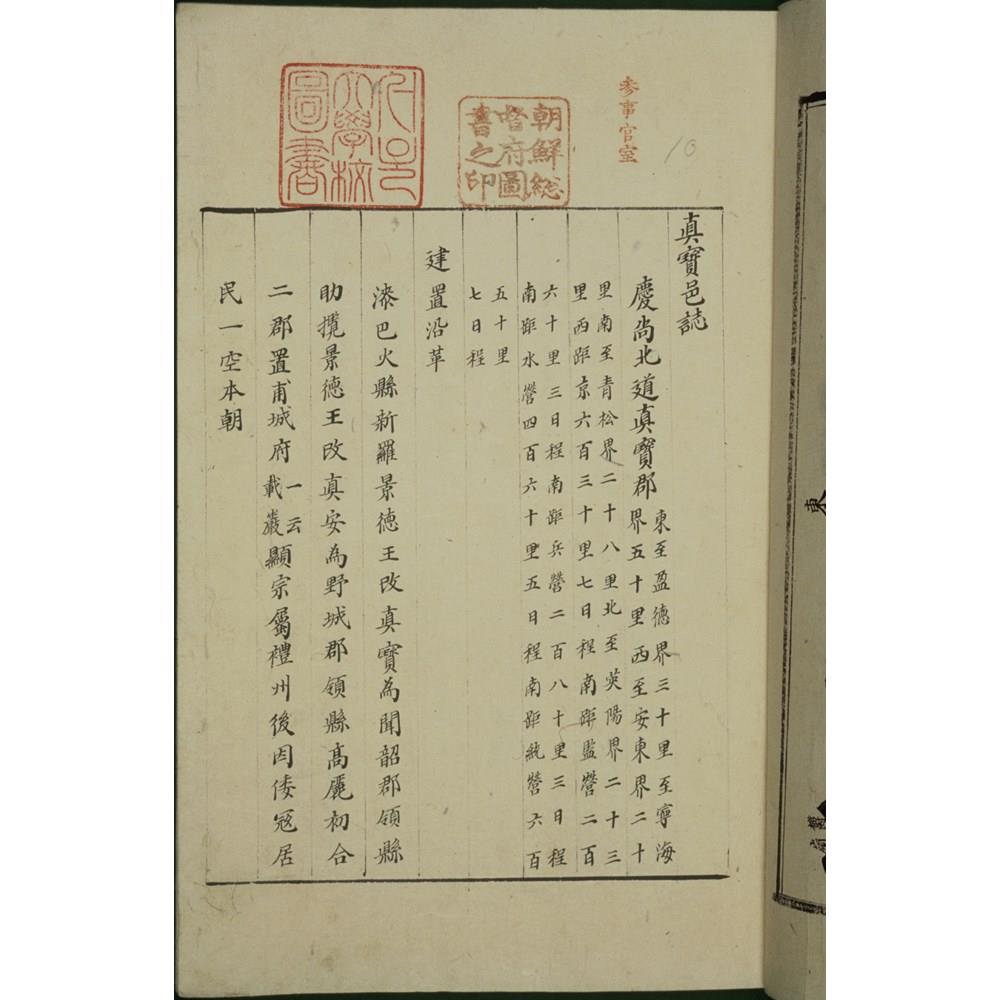 参事官室
10
朝鮮総
督府圖
書之印
大學校
圖書
真寶邑誌
慶尚北道真寶郡
東至盈德界三十里至寧海
界五十里西至安東界二十
里南至青松界二十八里北至英陽界二十三
里西距京六百三十里七日程南距監營二百
六十里三日程南距兵營二百八十里三日程
南距水營四百六十里五日程南距統營六百
五十里
七日程
建置沿革
漆巴火縣新羅景德王改真寶為聞韶郡領縣
助攬景德王改真安為野城郡領縣高麗初合
二郡置甫城府一云載巖顯宗屬禮州後因倭寇居
民一空本朝
東